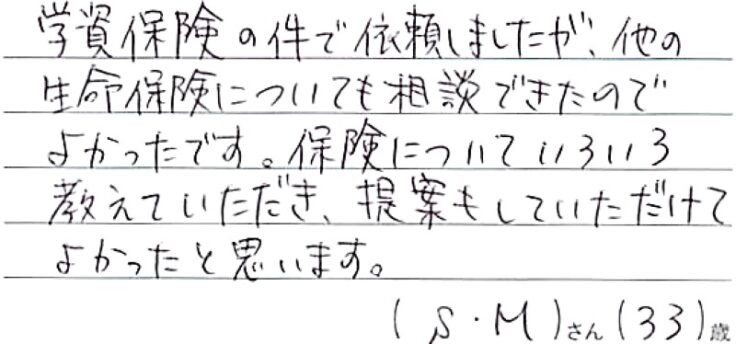 学資保険の件で依頼しましたが、他の
生命保険についても相談できたので
よかったです。保険についていろいろ
教えていただき、提案もしていただけて
よかったと思います。
(S・M)さん(33)歳